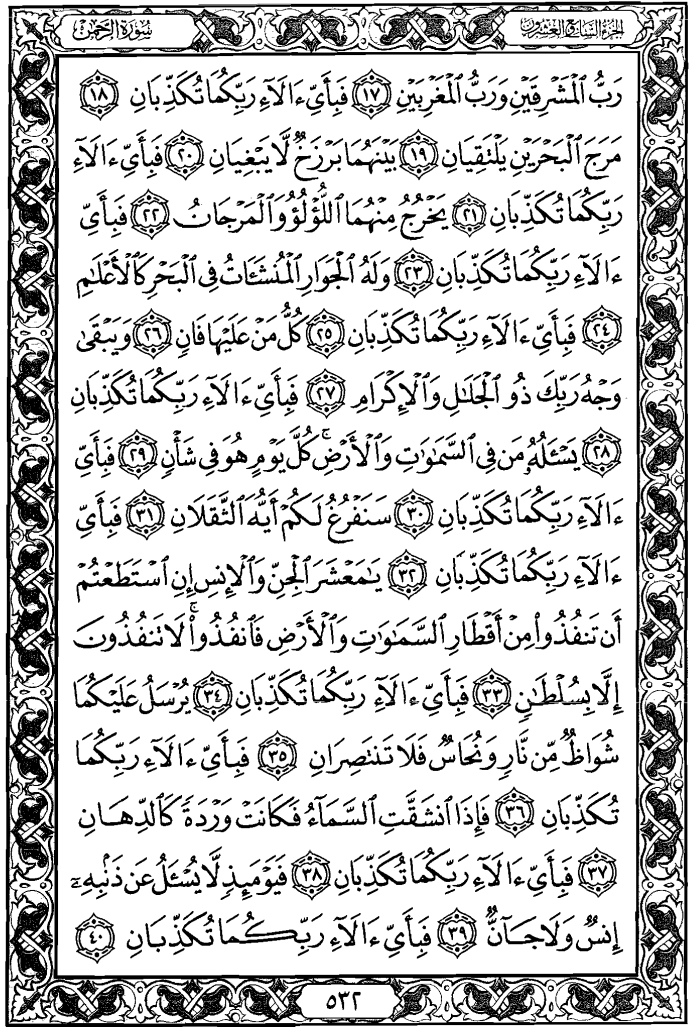 الجزء السابع والعشرون
سورة الرحمن
رَبُّ ٱلْمَشْرِقَيْنِ وَرَبُّ ٱلْمَغْرِبَيْنِ ١٧ فَبِأَىِّ ءَالَآءِ رَبِّكُمَا تُكَذِّبَانِ ١٨
مَرَجَ ٱلْبَحْرَيْنِ يَلْتَقِيَانِ ١٩ بَيْنَهُمَا بَرْزَخٌ لَّا يَبْغِيَانِ ٢٠ فَبِأَىِّ ءَالَآءِ
رَبِّكُمَا تُكَذِّبَانِ ٢١ يَخْرُجُ مِنْهُمَا ٱللُّؤْلُؤُ وَٱلْمَرْجَانُ ٢٢ فَبِأَىِّ
ءَالَآءِ رَبِّكُمَا تُكَذِّبَانِ ٢٣ وَلَهُ ٱلْجَوَارِ ٱلْمُنشَـَٔاتُ فِى ٱلْبَحْرِ كَٱلْأَعْلَٰمِ
٢٤ فَبِأَىِّ ءَالَآءِ رَبِّكُمَا تُكَذِّبَانِ ٢٥ كُلُّ مَنْ عَلَيْهَا فَانٍ ٢٦ وَيَبْقَىٰ
وَجْهُ رَبِّكَ ذُو ٱلْجَلَٰلِ وَٱلْإِكْرَامِ ٢٧ فَبِأَىِّ ءَالَآءِ رَبِّكُمَا تُكَذِّبَانِ
٢٨ يَسْـَٔلُهُۥ مَن فِى ٱلسَّمَٰوَٰتِ وَٱلْأَرْضِ ۚ كُلَّ يَوْمٍ هُوَ فِى شَأْنٍ ٢٩ فَبِأَىِّ
ءَالَآءِ رَبِّكُمَا تُكَذِّبَانِ ٣٠ سَنَفْرُغُ لَكُمْ أَيُّهَ ٱلثَّقَلَانِ ٣١ فَبِأَىِّ
ءَالَآءِ رَبِّكُمَا تُكَذِّبَانِ ٣٢ يَٰمَعْشَرَ ٱلْجِنِّ وَٱلْإِنسِ إِنِ ٱسْتَطَعْتُمْ
أَن تَنفُذُوا۟ مِنْ أَقْطَارِ ٱلسَّمَٰوَٰتِ وَٱلْأَرْضِ فَٱنفُذُوا۟ ۚ لَا تَنفُذُونَ
إِلَّا بِسُلْطَٰنٍ ٣٣ فَبِأَىِّ ءَالَآءِ رَبِّكُمَا تُكَذِّبَانِ ٣٤ يُرْسَلُ عَلَيْكُمَا
شُوَاظٌ مِّن نَّارٍ وَنُحَاسٌ فَلَا تَنتَصِرَانِ ٣٥ فَبِأَىِّ ءَالَآءِ رَبِّكُمَا
تُكَذِّبَانِ ٣٦ فَإِذَا ٱنشَقَّتِ ٱلسَّمَآءُ فَكَانَتْ وَرْدَةً كَٱلدِّهَانِ
٣٧ فَبِأَىِّ ءَالَآءِ رَبِّكُمَا تُكَذِّبَانِ ٣٨ فَيَوْمَئِذٍ لَّا يُسْـَٔلُ عَن ذَنۢبِهِۦٓ
إِنسٌ وَلَا جَآنٌّ ٣٩ فَبِأَىِّ ءَالَآءِ رَبِّكُمَا تُكَذِّبَانِ ٤٠
٥٣٢